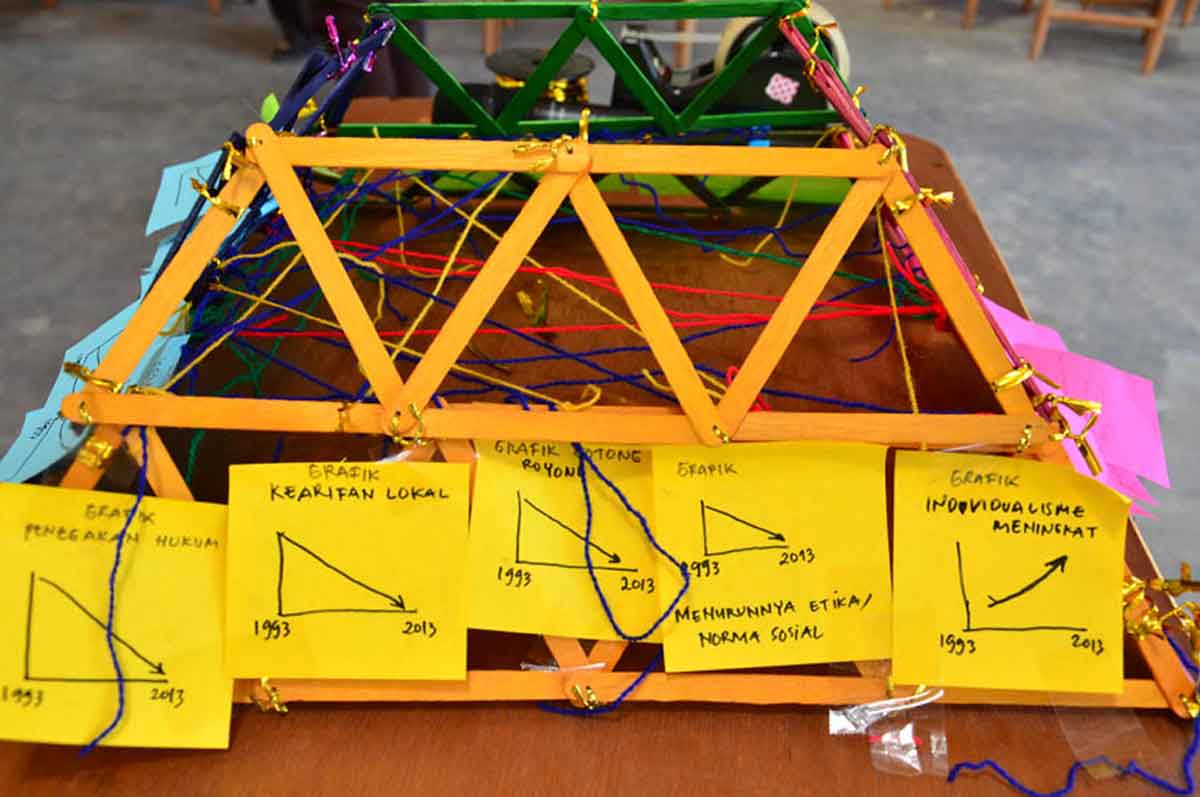 GRAFIK
PENEGAKAN HUKUM
1993 2013
GRAFIK
KEARIFAN LOKAL
1993 2013
GRAFIK GOTONG
ROYONG
1993 2013
GRAFIK
1993 2013
MENURUNNYA ETIKA/
NORMA SOSIAL
GRAFIK
INDIVIDUALISME
MENINGKAT
1993 2013